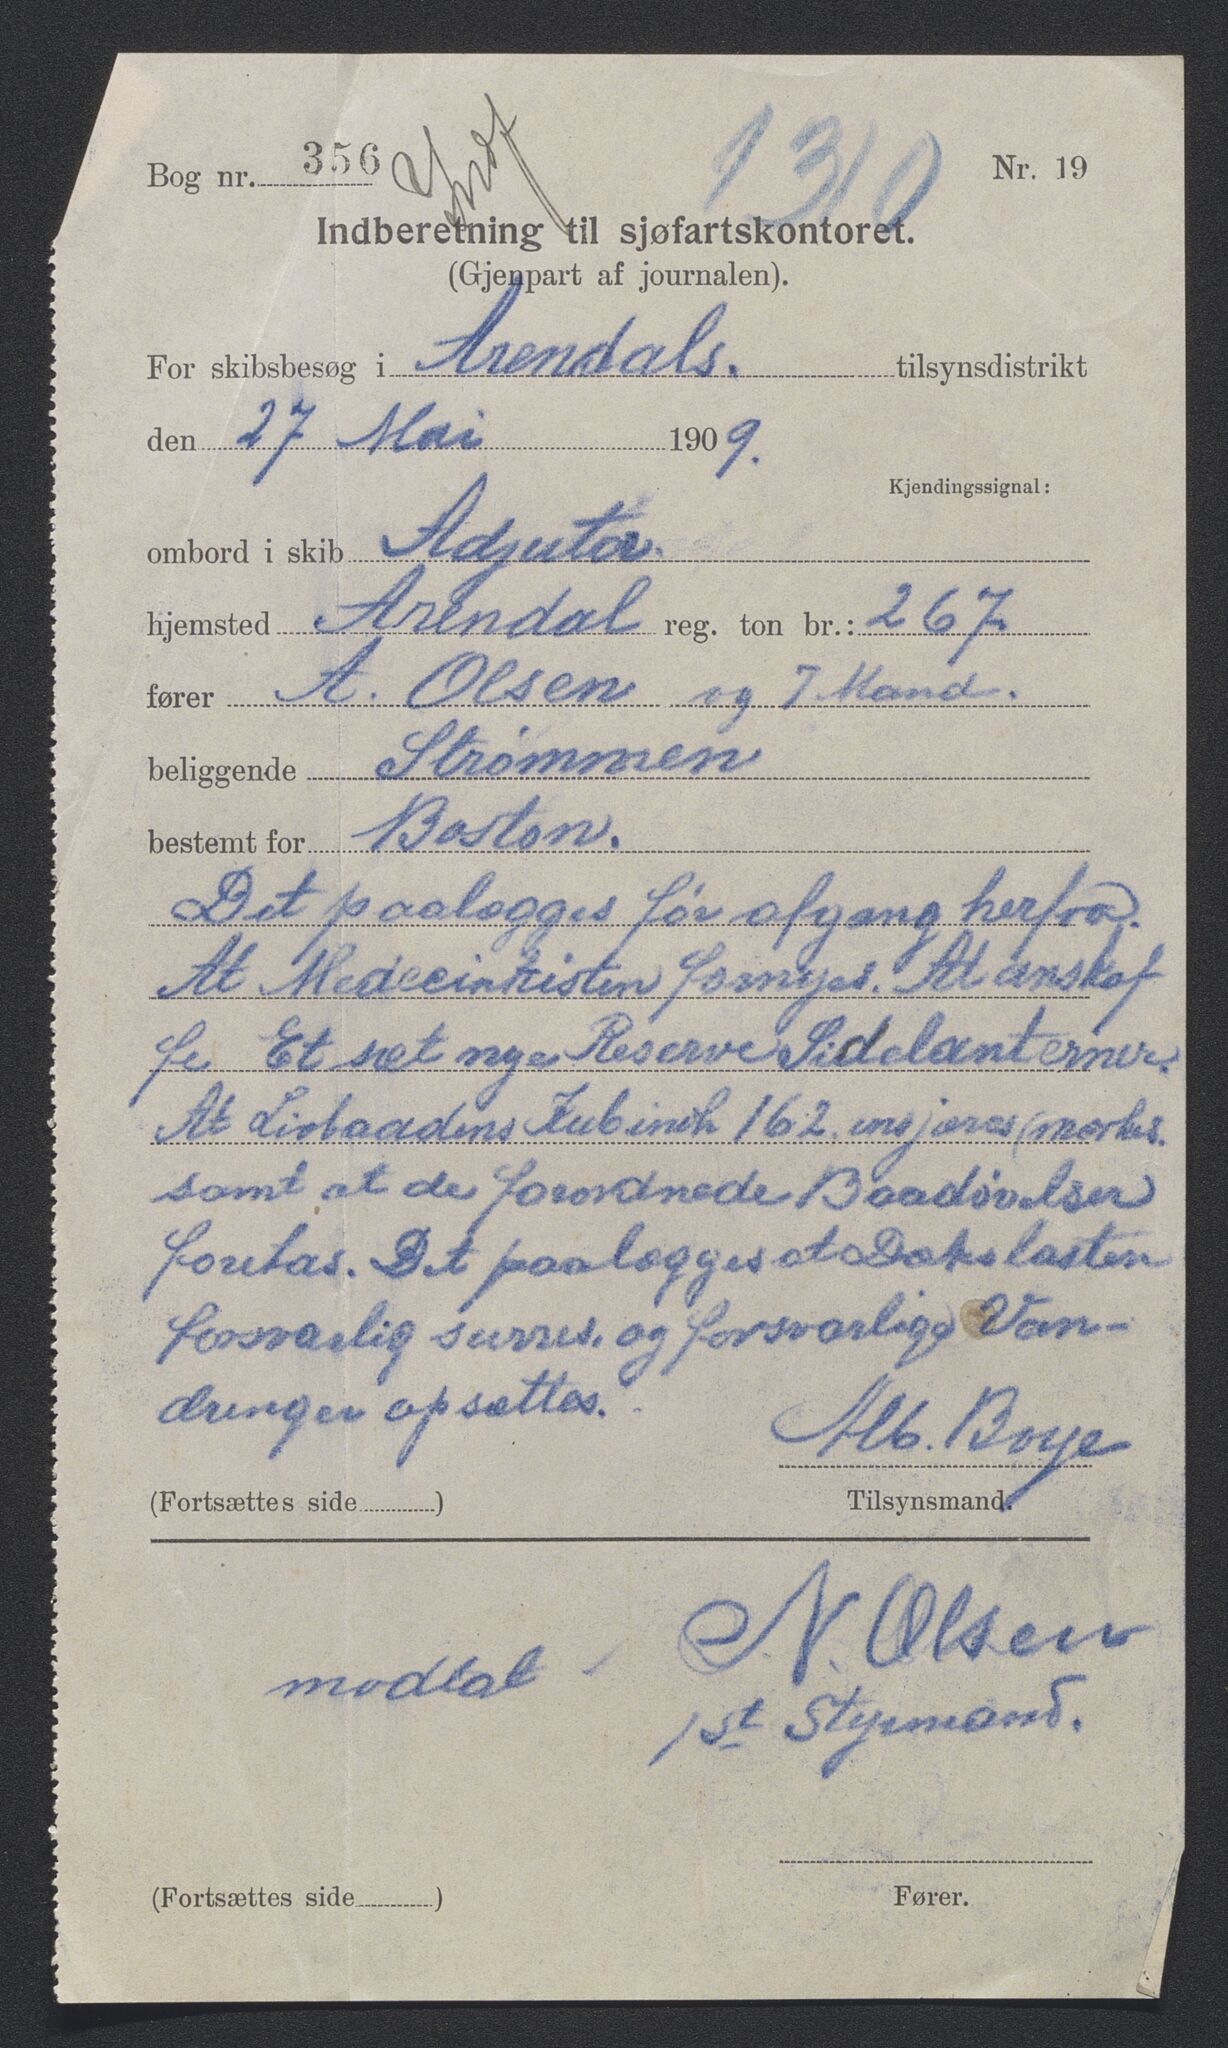 Bog nr. 356
1310
Nr. 19
Indberetning til sjøfartskontoret.
(Gjenpart af journalen).
For skibsbesøg i Arendals. tilsynsdistrikt
den 27 Mai 1909.
Kjendingssignal:
ombord i skib Adjutor
hjemsted Arendal reg. ton br.: 267
fører A. Olsen og 7 Mand.
beliggende Strømmen
bestemt for Boston.
Det paalægges før afgang herfra.
At Medecinkisten fornyes. At anskaf
fe Et sæt nye Reserve Sidelanterner.
At Livbaadens Kubinh 162. insjæres (merkes.
samt at de forordnede Baadøvelser
foretas. Det paalægges at Dækslasten
forsvarlig surres. og forsvarlige Van-
dringer opsættes.
Alb. Boye
(Fortsættes side ) Tilsynsmand.
N. Olsen
modtat
1st Styrmand.
(Fortsættes side ) Fører.